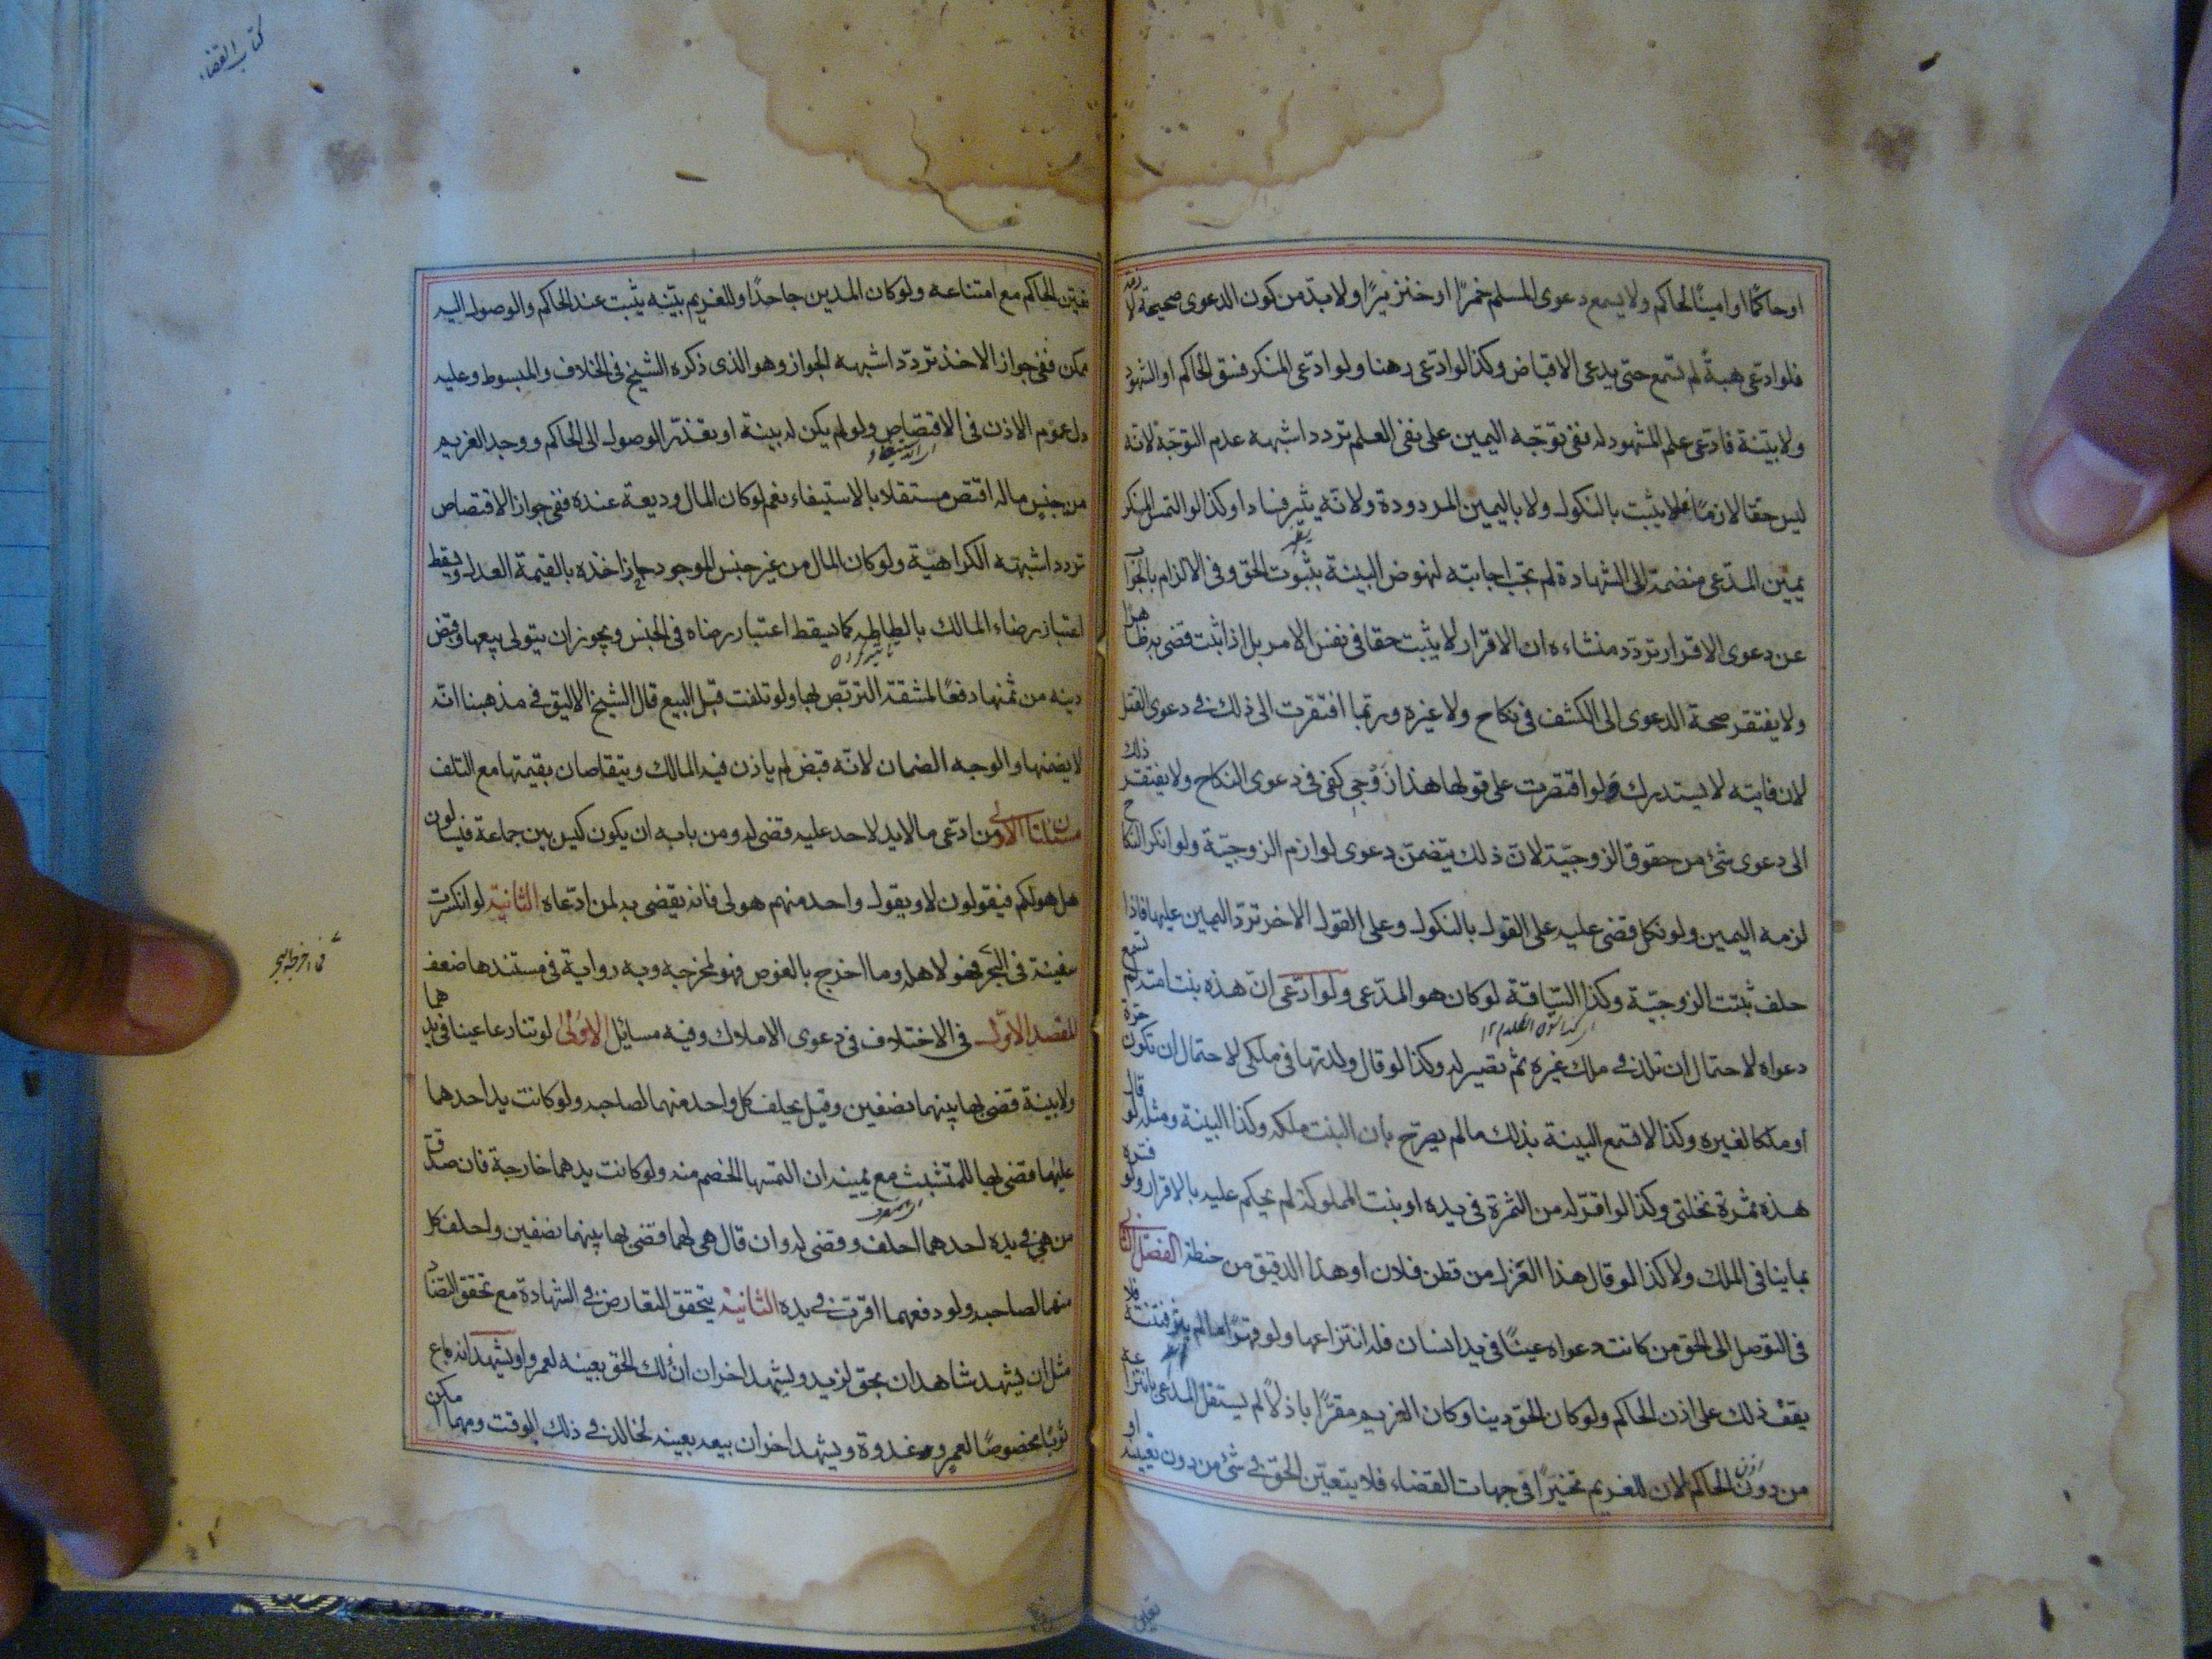 او حاكمًا او امينًا لحاكم ولا يسمع دعوى المسلم خمرًا او خنزيرًا ولا بدّ من كون الدعوى صحيحة لازمة
فلو ادّعى هبةً لم تسمع حتّى يدعى الاقباض وكذا لو ادّعى رهنا ولو ادّعى المنكر فسق الحاكم او الشهود
ولا بيّنة فادّعى علم المشهود له ففى توجّه اليمين على نفى العلم تردد اشبهه عدم التوجّه لانّه
ليس حقا لازمًا فلا يثبت بالنكول ولا باليمين المردودة ولانّه يثير فسادا وكذا لو التمس المنكر
يمين المدّعى منضمة الى الشهادة لم تجب اجابته لنهوض البينة بثبوت الحق وفى الالزام بالجواب
عن دعوى الاقرار تردّد منشاءه ان الاقرار لا يثبت حقا فى نفس الامر بل اذا ثبت قضى به ظاهرًا
ولا يفتقر صحة الدعوى الى الكشف فى نكاح ولا غيره وربّما افتقرت الى ذلك فى دعوى القتل
لان فايته لا يستدرك ولو اقتصرت على قولها هذا زوجى كفى فى دعوى النكاح ولا يفتقر ذلك
الى دعوى شئ من حقوق الزوجيّة لانّ ذلك يتضمّن دعوى لوازم الزوجيّة ولو انكر النكاح
لزمه اليمين ولو نكل قضى عليه على القول بالنكول وعلى القول الاخر تردّ اليمين عليها فاذا
حلف ثبتت الزوجيّة وكذا السّياقة لو كان هو المدّعى ولو ادّعى انّ هذه بنت امته لم تسمع
دعواه لاحتمال ان تلد فى ملك غيره ثمّ تصير له وكذا لو قال ولدتها فى ملكى لاحتمال ان تكون حرّة
او ملكا لغيره وكذا لا تسمع البينة بذلك ما لم يصرّح بأن البنت ملكه وكذا البينة ومثله لو قال
هذه ثمرة نخلتى وكذا لو اقرّ له من الثمرة فى يده او بنت المملوكة لم يحكم عليه بالاقرار ولو فسّره
بما ينافى الملك ولا كذا لو قال هذا الغزل من قطن فلان او هذا الدقيق من حنطة الفصل الثانى
فى التوصل الى الحق من كانت دعواه عينًا فى يد انسان فله انتزاعها ولو قهرًا ما لم يثر فتنة فلا
يقف ذلك على اذن الحاكم ولو كان الحق دينا وكان الغريم مقرًّا باذلًا لم يستقل المدّعى بانتزاعه
من دون الحاكم لان للغريم تخيّرًا فى جهات القضاء فلا يتعيّن الحقّ فى شئ من دون تعيينه او
تعيين
كتاب القضاء
تعيّن الحاكم مع امتناعه ولو كان المدين جاحدًا وللغريم بيّنه يثبت عند الحاكم والوصول اليه
ممكن ففى جواز الاخذ تردّد اشبهه الجواز وهو الذى ذكره الشيخ فى الخلاف والمبسوط وعليه
دل عموم الاذن فى الاقتصاص ولو لم يكن له بينة او تعذّر الوصول الى الحاكم ووجد الغريم
من جنس ماله اقتصّ مستقلا بالاستيفاء نعم لو كان المال وديعة عنده ففى جواز الاقتصاص
تردد اشبهه الكراهيّة ولو كان المال من غير جنس الموجود جاز اخذه بالقيمة العدل ويسقط
اعتبار رضاء المالك بالطاطه كما يسقط اعتبار رضاه فى الجنس ويجوز ان يتولى بيعها وقبض
دينه من ثمنها دفعًا لمشقة التربّص بها ولو تلفت قبل البيع قال الشيخ الاليق فى مذهبنا انّه
لا يضمنها والوجه الضمان لانّه قبض لم ياذن فيه المالك ويتقاصان بقيمتها مع التلف
مسئلتان الاولى من ادّعى مالا يد لاحد عليه قضى له ومن بابه ان يكون كيس بين جماعة فيسألون
هل هو لكم فيقولون لا ويقول واحد منهم هو لى فانه يقضى به لمن ادّعاه الثانية لو انكسرت
سفينة فى البحر فهو لاهله وما اخرج بالغوص فهو لمخرجه وبه رواية فى مستندها ضعف
المقصد الاوّل فى الاختلاف فى دعوى الاملاك وفيه مسائل الاولى لو تنازعا عينا فى يدهما
ولا بينة قضى بها بينهما نصفين وقيل يحلف كل واحد منهما لصاحبه ولو كانت يد احدهما
عليها قضى بها للمتشبث مع يمينه ان التمسها الخصم منه ولو كانت يدهما خارجة فان صدّق
من هى فى يده احدهما احلف وقضى له وان قال هى لهما قضى بها بينهما نصفين واحلف كل
منهما لصاحبه ولو دفعهما اقرت فى يده الثانية يتحقق التعارض فى الشهادة مع تحقق التضاد
مثل ان يشهد شاهدان بحق لزيد ويشهد اخران انّ ذلك الحق بعينه لعمرو او يشهد انه باع
ثوبًا مخصوصًا لعمرو غدوة ويشهد اخران ببيعه بعينه لخالد فى ذلك الوقت ومهما امكن